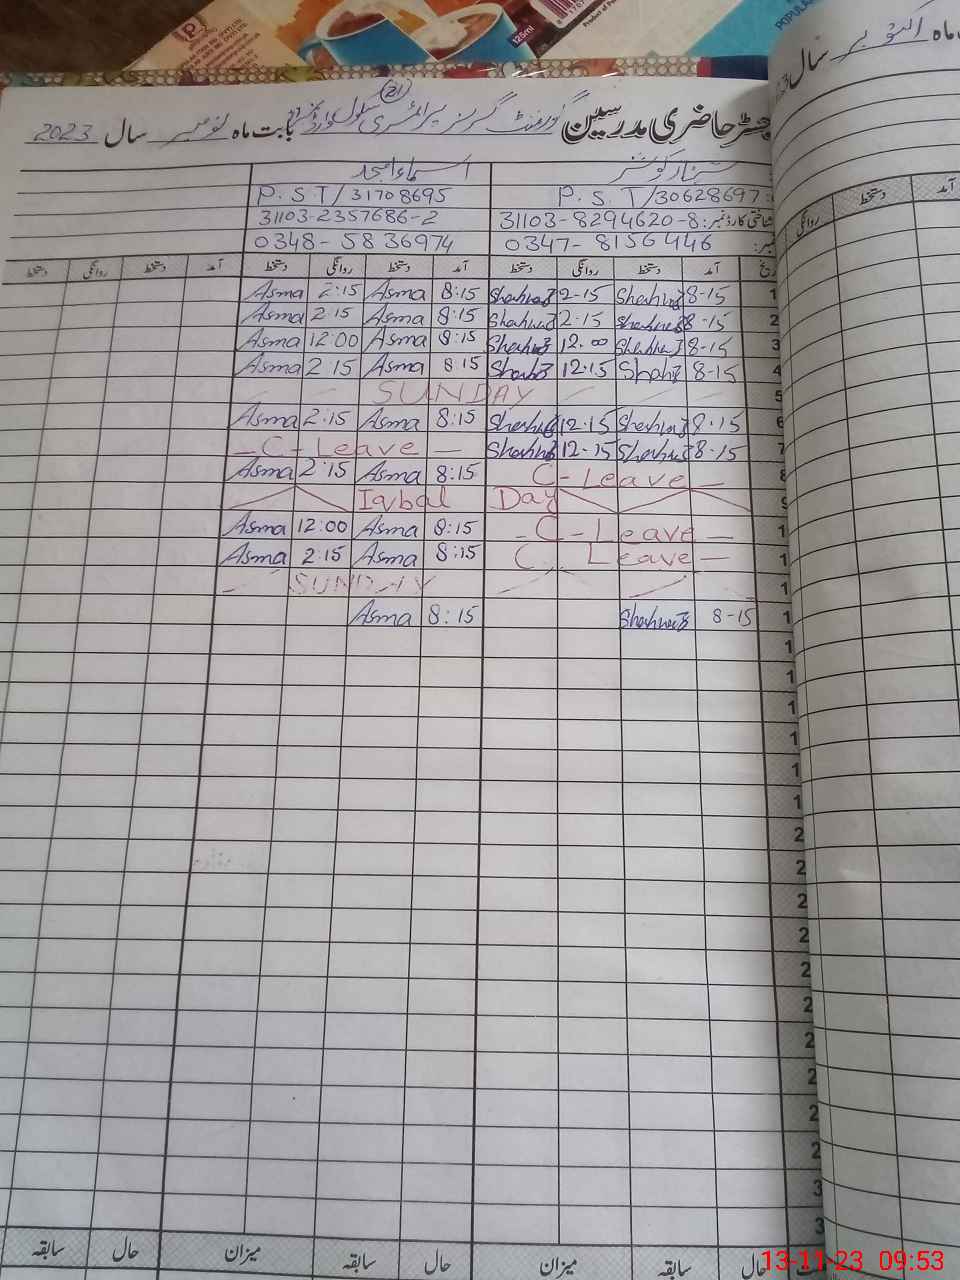 رجسٹر حاضری مدرسین گورنمنٹ گرلز پرائمری سکول (21) بابت ماہ نومبر سال 2023
اسماء امجد
P. S. T/30628697 P. S. T/31708695
شناختی کارڈ نمبر: 31103-8294620-8 31103-2357686-2
0347-8156446 0348-5836974
آمد دستخط روانگی دستخط آمد دستخط روانگی دستخط آمد دستخط روانگی دستخط
1 8-15 Shahnaz 2-15 Shahnaz 8:15 Asma 2:15 Asma
2 8-15 Shahnaz 2.15 Shahnaz 8:15 Asma 2:15 Asma
3 8-15 Shahnaz 12.00 Shahnaz 8:15 Asma 12:00 Asma
4 8-15 Shahz 12.15 Shahz 8:15 Asma 2:15 Asma
5 SUNDAY
6 8.15 Shahnaz 12.15 Shahnaz 8:15 Asma 2:15 Asma
7 8-15 Shahnaz 12-15 Shahnaz - C - Leave -
8 C - Leave - 8:15 Asma 2:15 Asma
9 Iqbal Day
1 - C - Leave - 8:15 Asma 12:00 Asma
1 C Leave - 8:15 Asma 2:15 Asma
1 SUNDAY
1 8-15 Shahnaz 8:15 Asma
1
1
1
1
1
1
2
2
2
2
2
2
2
2
2
2
3
3
حال سابقہ میزان حال سابقہ میزان حال سابقہ
ماہ اکتوبر سال
آمد دستخط روانگی
125ml
POPULA
13-11-23 09:53